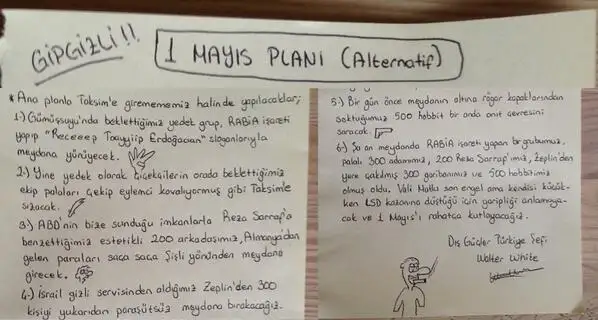 GİPGİZLİ!!
1 MAYIS PLANI (Alternatif)
* Ana planla Taksim'e girememiz halinde yapılacaklar;
1-) Gümüşsuyu'nda beklettiğimiz yedek grup, RABİA işareti
yapıp "Receeep Taayyiip Erdoğaaan" sloganlarıyla
meydana yürüyecek.
2-) Yine yedek olarak Çiçekçilerin orada beklettiğimiz
ekip palaları çekip eylemci kovalıyormuş gibi Taksim'e
sızacak.
3-) ABD'nin bize sunduğu imkanlarla Reza Sarraf'a
benzettiğimiz estetikli 200 arkadaşımız, Almanya'dan
gelen paraları saça saça Şişli yönünden meydana
girecek.
4-) İsrail gizli servisinden aldığımız Zeplin'den 300
kişiyi yukarıdan paraşütsüz meydana bırakacağız.
5-) Bir gün önce meydanın altına rögar kapaklarından
soktuğumuz 500 hobbit bir anda anıt çevresini
saracak.
6-) Şu an meydanda RABİA işareti yapan bir grubumuz,
palalı 300 adamımız, 200 Reza Sarraf'ımız, Zeplin'den
yere çakılmış 300 garibanımız ve 500 hobbitimiz
olmuş oldu. Vali Mutlu son engel ama kendisi küçük-
ken LSD kazanına düştüğü için garipliği anlamaya-
cak ve 1 Mayıs'ı rahatça kutlayacağız.
Dış Güçler Türkiye Şefi
Walter White